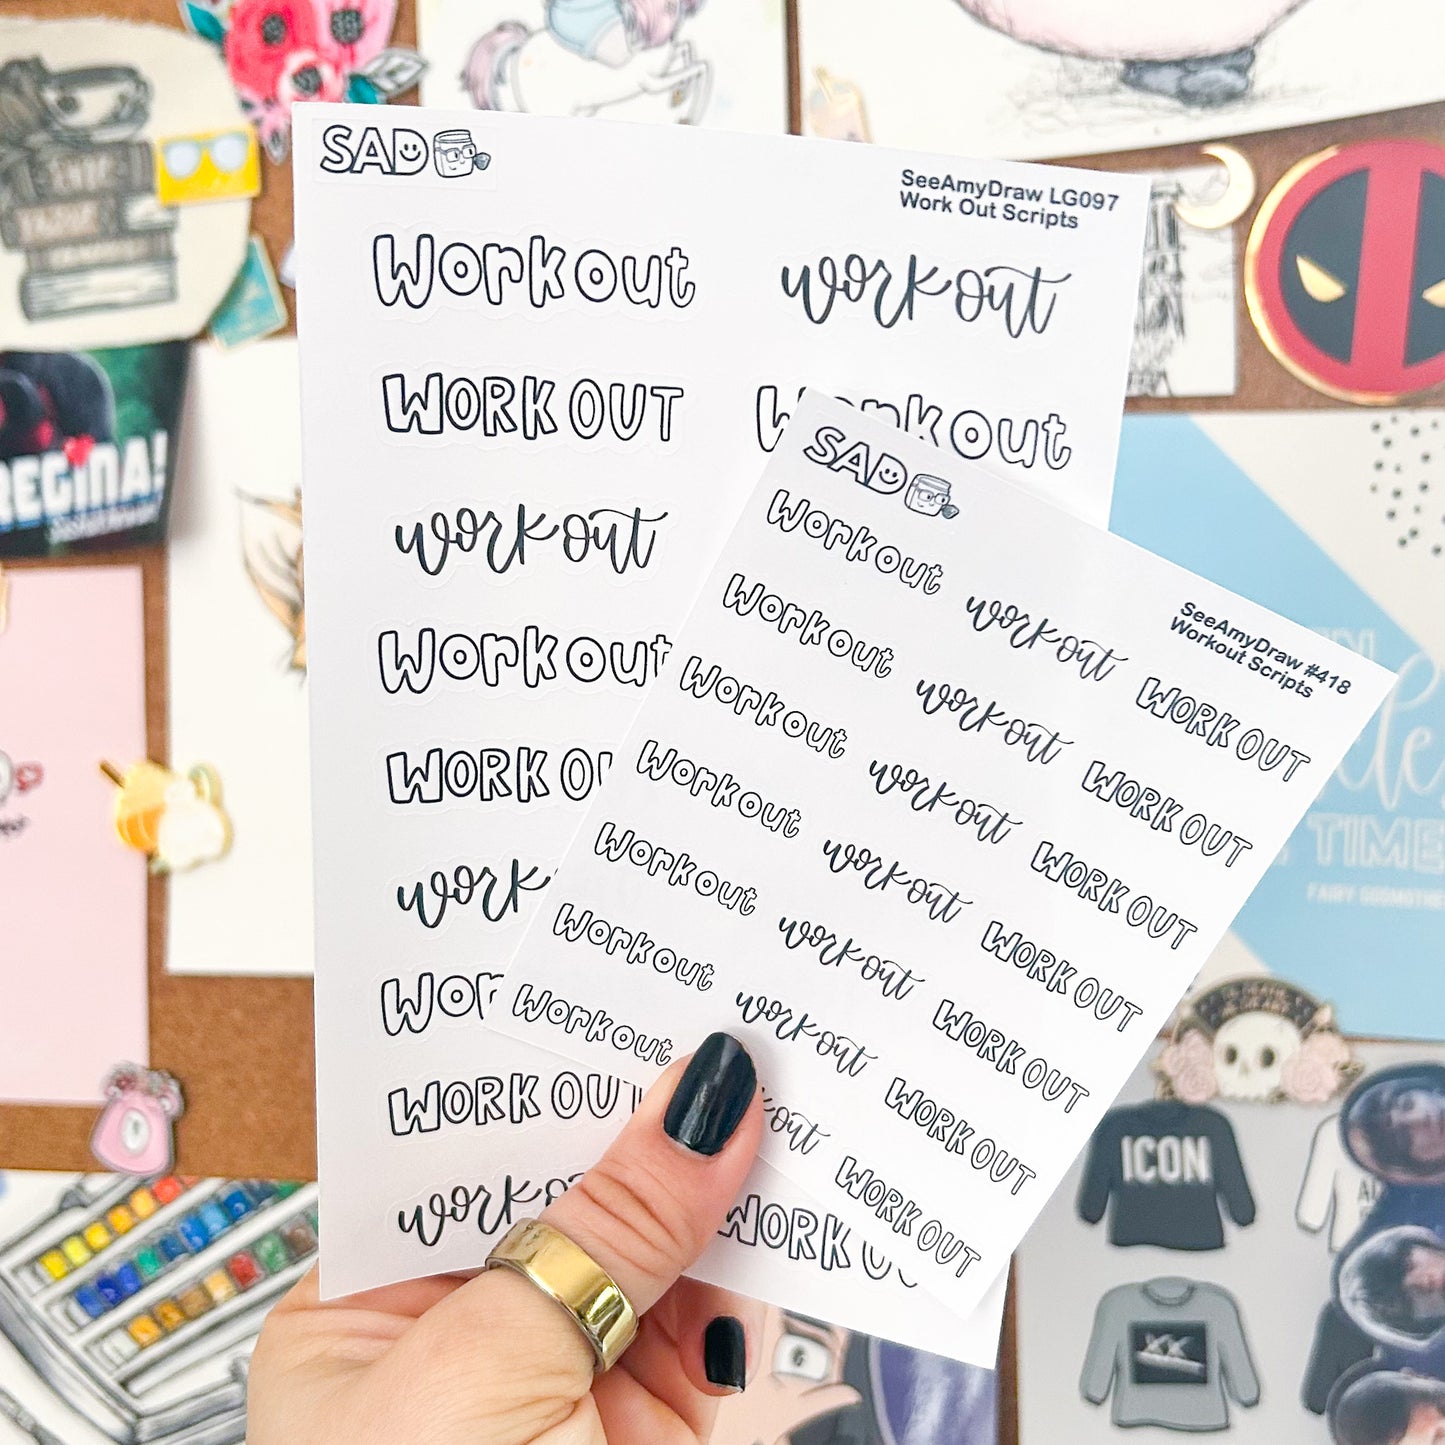 SAD
SeeAmyDraw LG097
Work Out Scripts
Workout
work out
WORK OUT
Workout
work out
Workout
WORK OU
work
Wor
WORK OUT
work o
WORK OU
SAD
SeeAmyDraw #418
Workout Scripts
Workout work out WORK OUT
Workout work out WORK OUT
Workout work out WORK OUT
Workout work out WORK OUT
Workout work out WORK OUT
Workout work out WORK OUT
Workout out WORK OUT
REGINA!
TIME
FAIRY GODMOTHE
ICON
XX